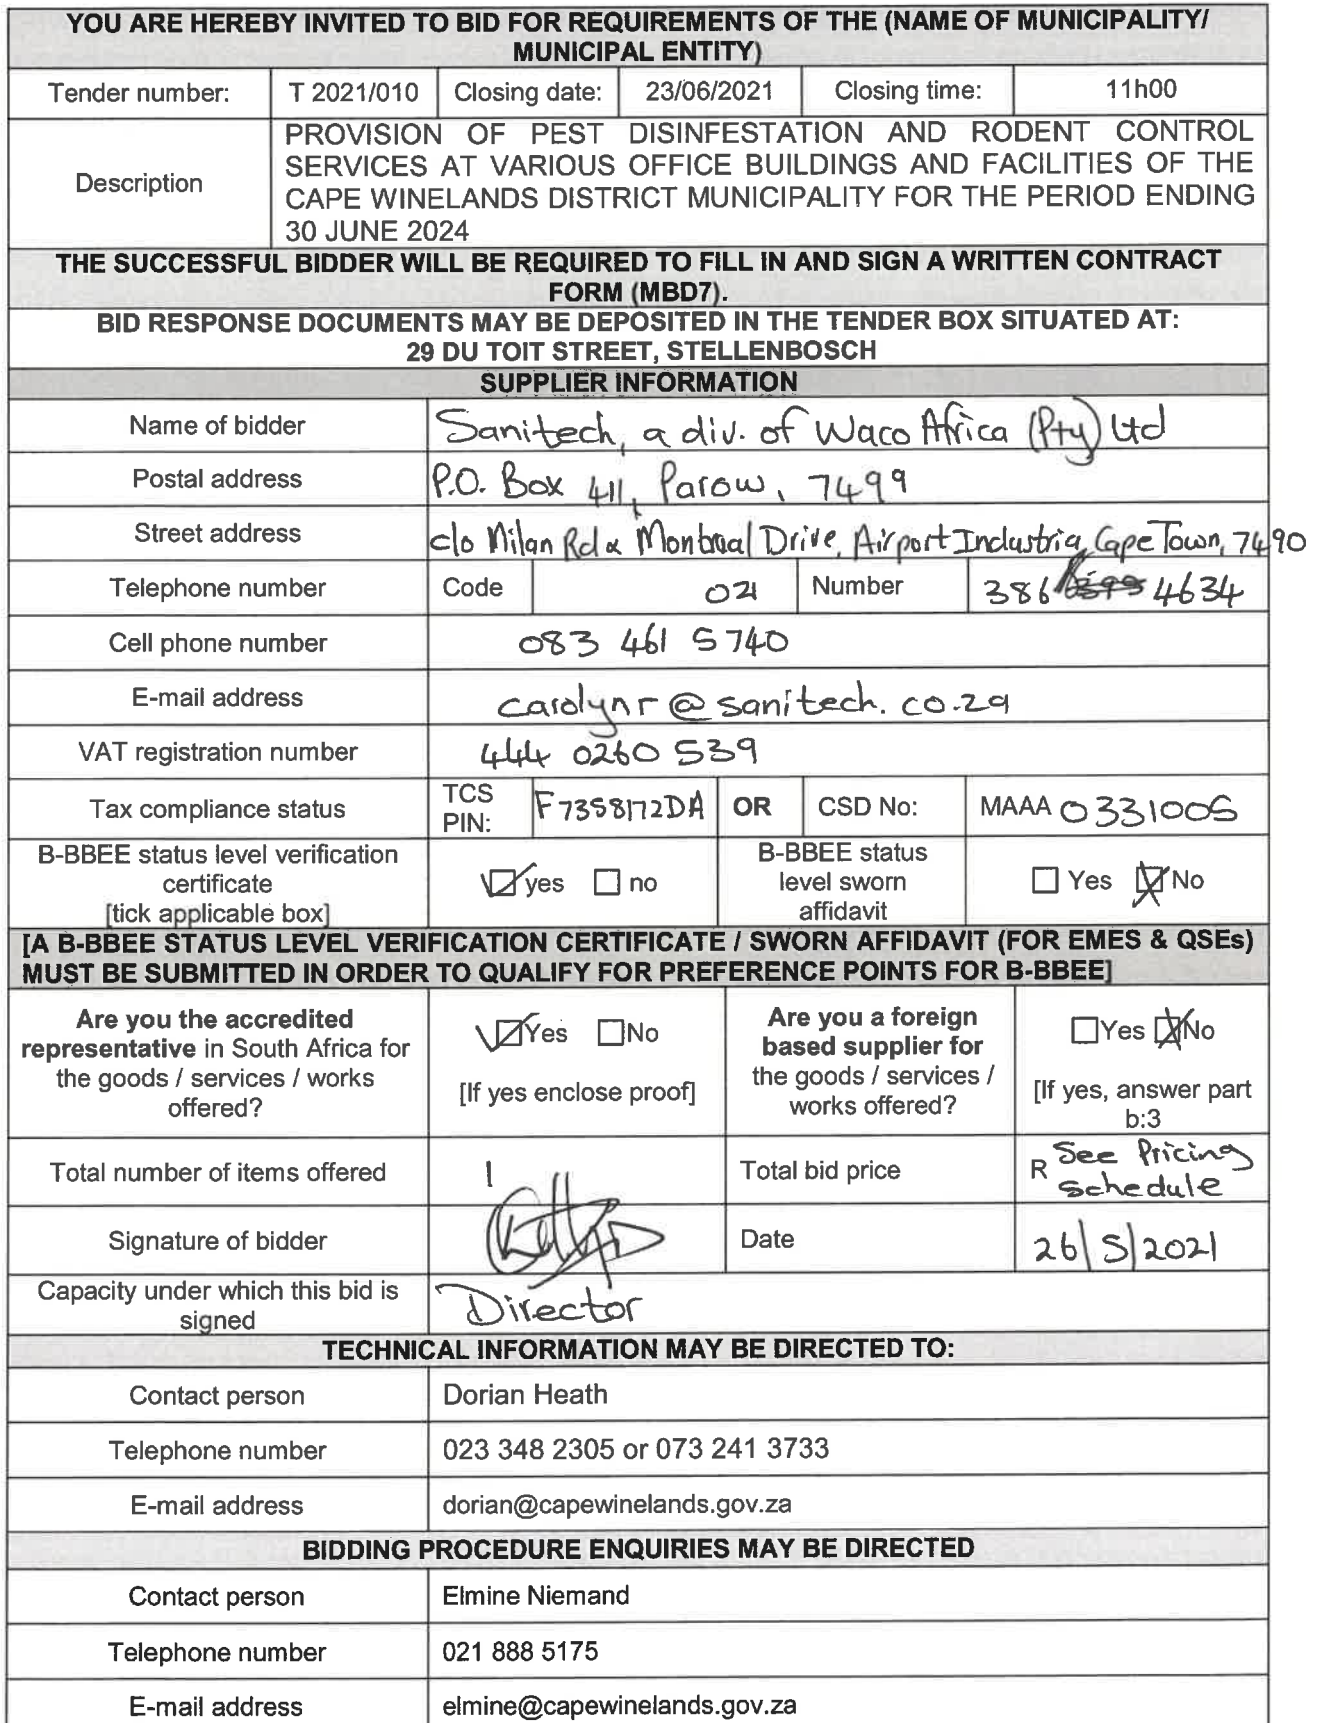 YOU ARE HEREBY INVITED TO BID FOR REQUIREMENTS OF THE (NAME OF MUNICIPALITY/
MUNICIPAL ENTITY)
Tender number: T 2021/010 Closing date: 23/06/2021 Closing time: 11h00
Description
PROVISION OF PEST DISINFESTATION AND RODENT CONTROL
SERVICES AT VARIOUS OFFICE BUILDINGS AND FACILITIES OF THE
CAPE WINELANDS DISTRICT MUNICIPALITY FOR THE PERIOD ENDING
30 JUNE 2024
THE SUCCESSFUL BIDDER WILL BE REQUIRED TO FILL IN AND SIGN A WRITTEN CONTRACT
FORM (MBD7).
BID RESPONSE DOCUMENTS MAY BE DEPOSITED IN THE TENDER BOX SITUATED AT:
29 DU TOIT STREET, STELLENBOSCH
SUPPLIER INFORMATION
Name of bidder Sanitech, a div. of Waco Africa (Pty) Ltd
Postal address P.O. Box 411, Parow, 7499
Street address c/o Milan Rd & Montreal Drive, Airport Industria, Cape Town, 7490
Telephone number Code 021 Number 386 4634
Cell phone number 083 461 5740
E-mail address carolynr@sanitech.co.za
VAT registration number 444 0260 539
Tax compliance status TCS PIN: F7358172DA OR CSD No: MAAA 0331005
B-BBEE status level verification
certificate
[tick applicable box]
yes no
B-BBEE status
level sworn
affidavit
Yes No
[A B-BBEE STATUS LEVEL VERIFICATION CERTIFICATE / SWORN AFFIDAVIT (FOR EMES & QSEs)
MUST BE SUBMITTED IN ORDER TO QUALIFY FOR PREFERENCE POINTS FOR B-BBEE]
Are you the accredited
representative in South Africa for
the goods / services / works
offered?
Yes No
[If yes enclose proof]
Are you a foreign
based supplier for
the goods / services /
works offered?
Yes No
[If yes, answer part
b:3
Total number of items offered 1
Total bid price R See Pricing
Schedule
Signature of bidder
Date 26/5/2021
Capacity under which this bid is
signed
Director
TECHNICAL INFORMATION MAY BE DIRECTED TO:
Contact person Dorian Heath
Telephone number 023 348 2305 or 073 241 3733
E-mail address dorian@capewinelands.gov.za
BIDDING PROCEDURE ENQUIRIES MAY BE DIRECTED
Contact person Elmine Niemand
Telephone number 021 888 5175
E-mail address elmine@capewinelands.gov.za